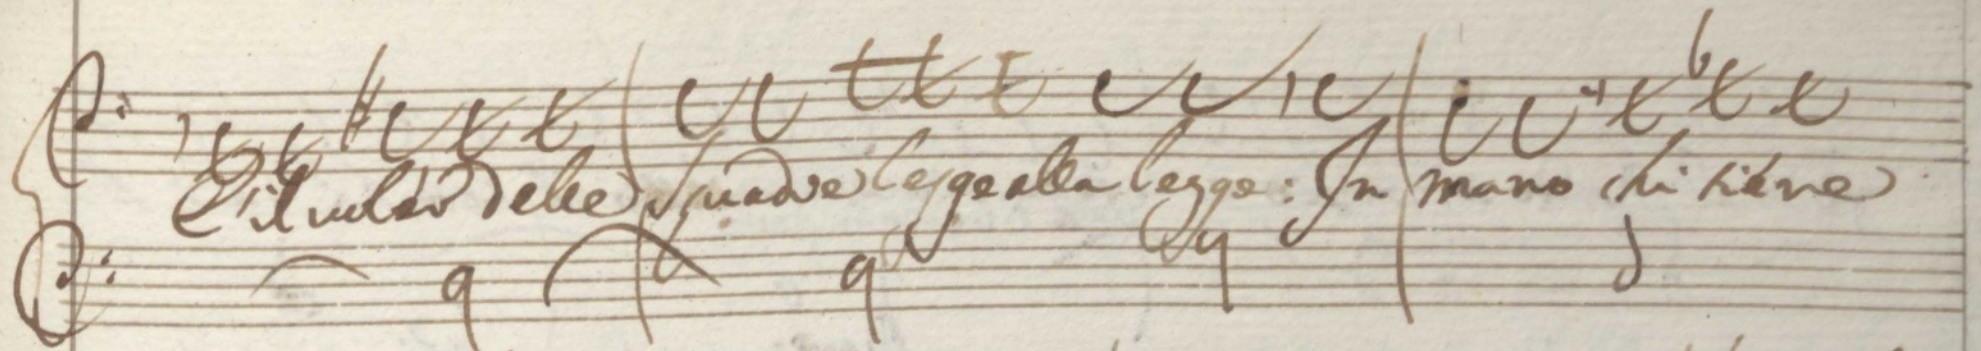 E il voler delle squadre legge alla legge: In mano chi tiene